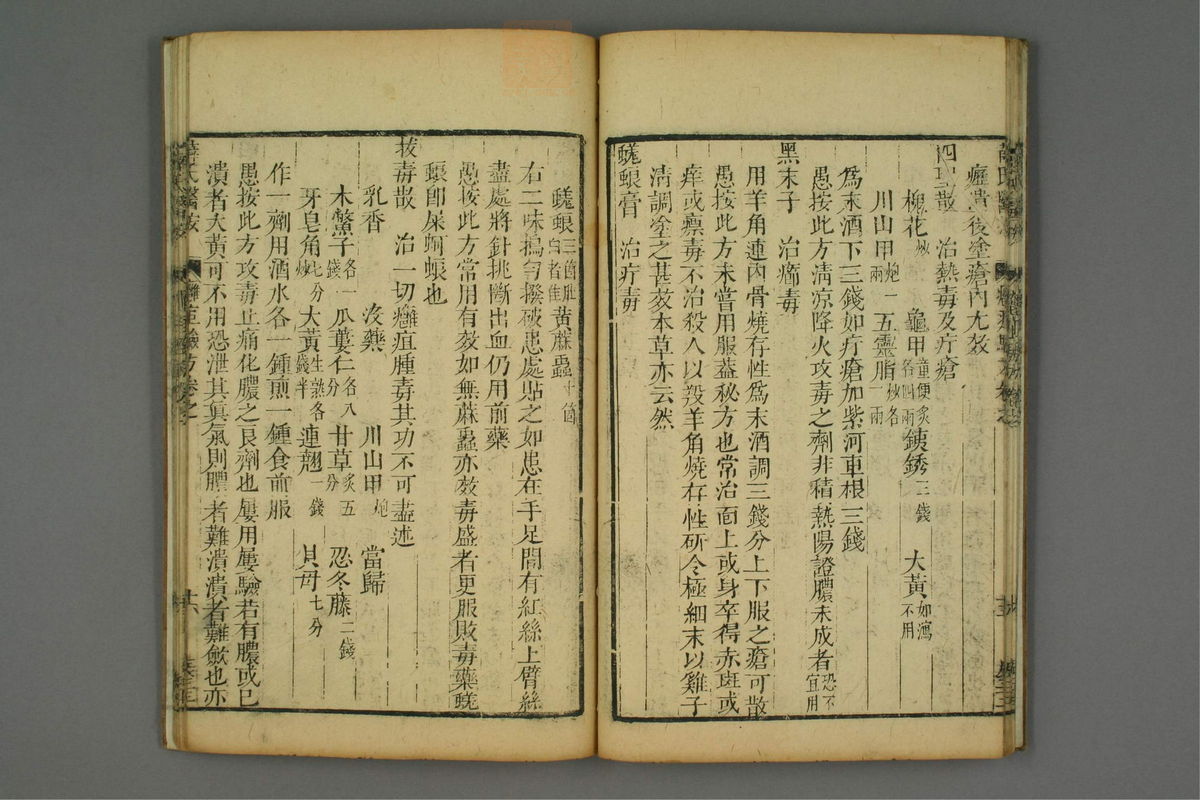 癰潰後塗瘡內尤效
四聖散　治熱毒及疔瘡
槐花炒　龜甲童便炙各四兩　銕銹三錢　大黃如瀉不用
川山甲炮一兩　五靈脂炒各一兩
為末酒下三錢如疔瘡加紫河車根三錢
愚按此方清凉降火攻毒之劑非積熱陽證膿未成者恐不宜用
黑末子　治癤毒
用羊角連內骨燒存性為末酒調三錢分上下服之瘡可散
愚按此方未嘗用服葢秘方也常治面上或身卒得赤斑或
痒或瘭毒不治殺人以羖羊角燒存性研令極細末以雞子
清調塗之甚效本草亦云然
蜣蜋膏　治疔毒
蜣蜋三箇肚白者佳　黃蔴䖝十箇
右二味搗勻撥破患處貼之如患在手足間有紅絲上臂絲
盡處將針挑斷出血仍用前藥
愚按此方常用有效如無蔴䖝亦效毒盛者更服敗毒藥蜣
蜋卽屎蚵蜋也
拔毒散　治一切癰疽腫毒其功不可盡述
乳香　沒藥　川山甲炮　當歸
木鱉子各一錢　瓜蔞仁各八分　甘草炙五分　忍冬藤二錢
牙皂角炒七分　大黃生熟各錢半　連翹一錢　貝母七分
作一劑用酒水各一鍾煎一鍾食前服
愚按此方攻毒止痛化膿之良劑也屢用屢驗若有膿或已
潰者大黃可不用恐泄其眞氣則膿者難潰潰者難斂也亦